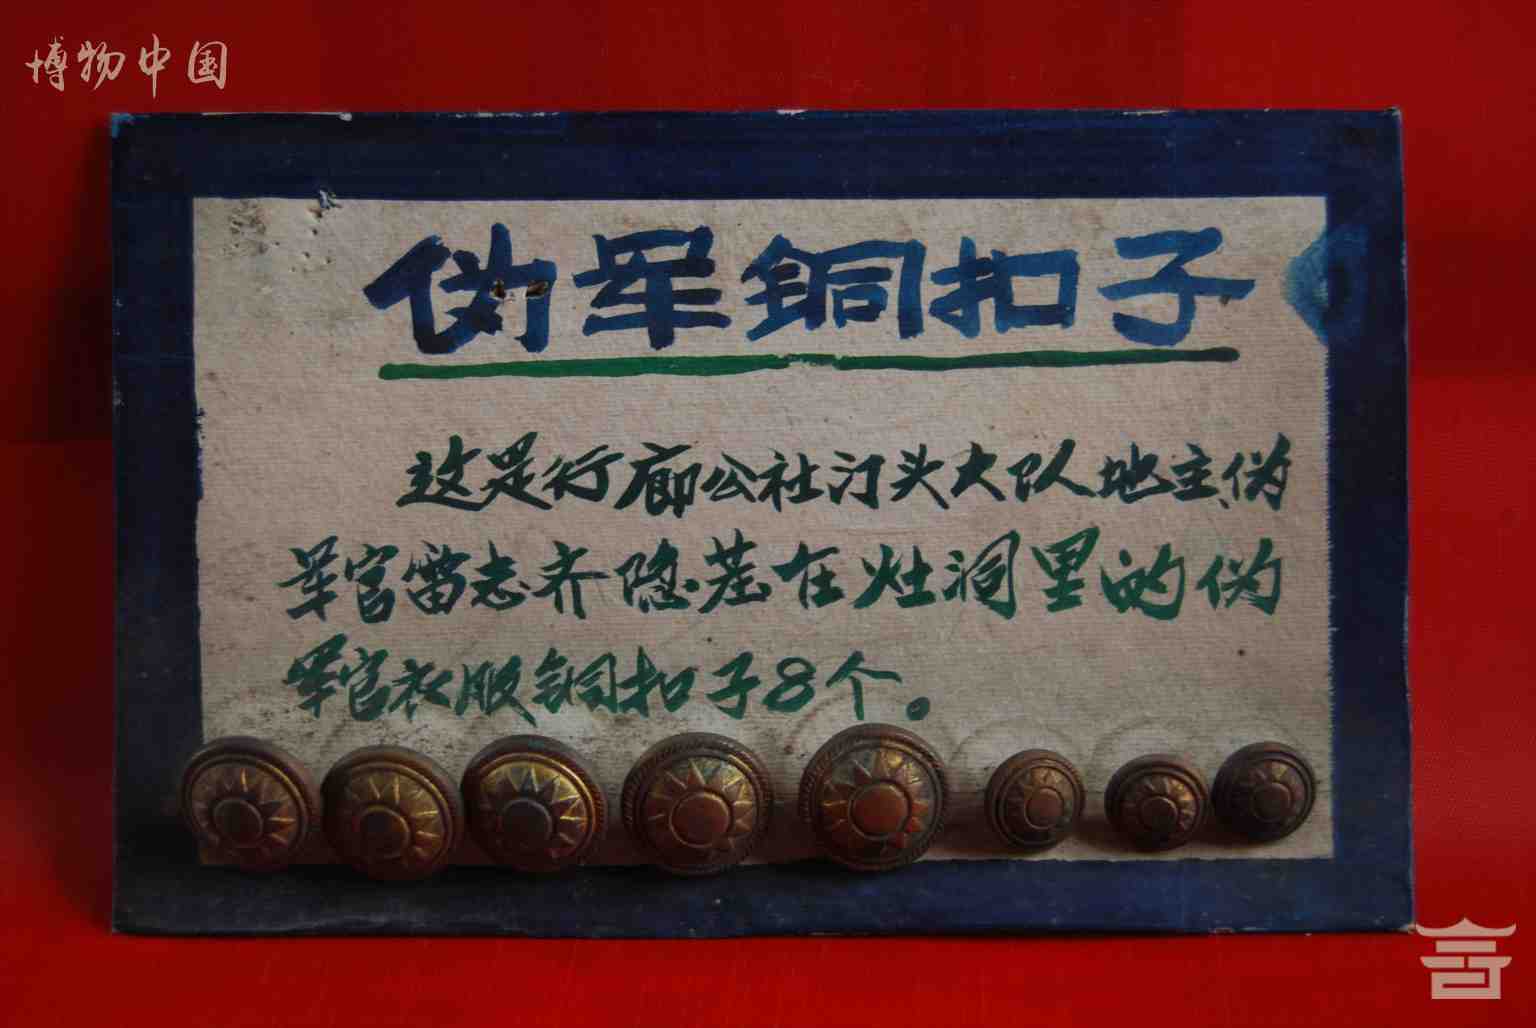 博物中国
伪军铜扣子
这是行廊公社汀头大队地主、伪
军官雷志齐隐茬在灶洞里的伪
军官衣服铜扣子8个。